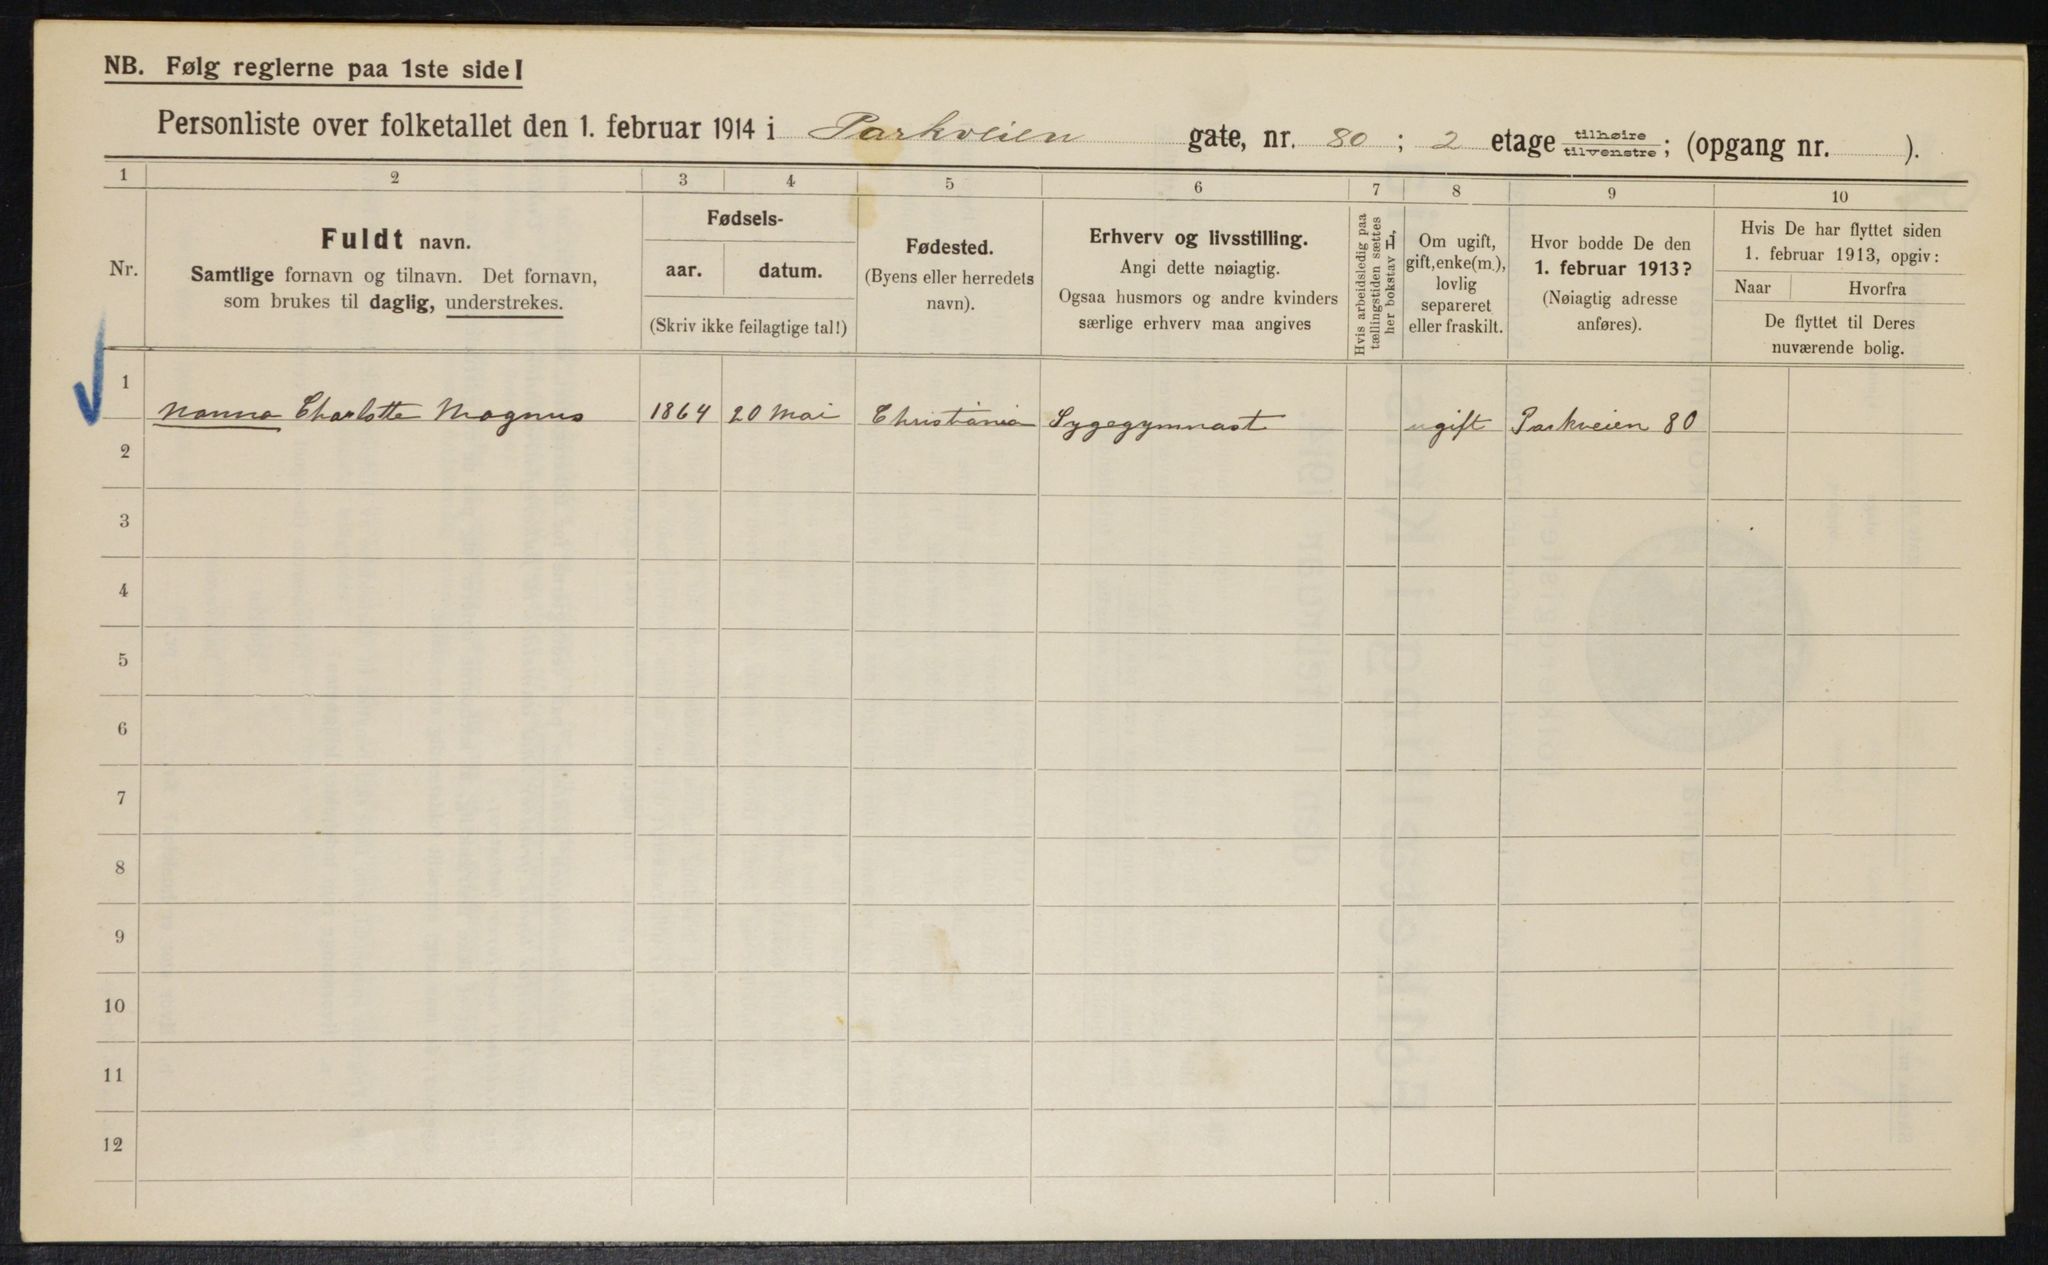 NB. Følg reglerne paa 1ste side!
Personliste over folketallet den 1. februar 1914 i Parkveien gate, nr. 80 ; 2 etage tilhøire tilvenstre ; (opgang nr. ).
1 2 3 4 5 6 7 8 9 10
Nr.
Fuldt navn.
Samtlige fornavn og tilnavn. Det fornavn,
som brukes til daglig, understrekes.
Fødsels-
aar. datum.
(Skriv ikke feilagtige tal!)
Fødested.
(Byens eller herredets
navn).
Erhverv og livsstilling.
Angi dette nøiagtig.
Ogsaa husmors og andre kvinders
særlige erhverv maa angives
Hvis arbeidsledig paa
tællingstiden sættes
her bokstav L,
Om ugift,
gift, enke(m.),
lovlig
separeret
eller fraskilt.
Hvor bodde De den
1. februar 1913?
(Nøiagtig adresse
anføres).
Hvis De har flyttet siden
1. februar 1913, opgiv:
Naar Hvorfra
De flyttet til Deres
nuværende bolig.
1 Nanna Charlotte Magnus 1864 20 Mai Christiania Sygegymnast ugift Parkveien 80
2
3
4
5
6
7
8
9
10
11
12